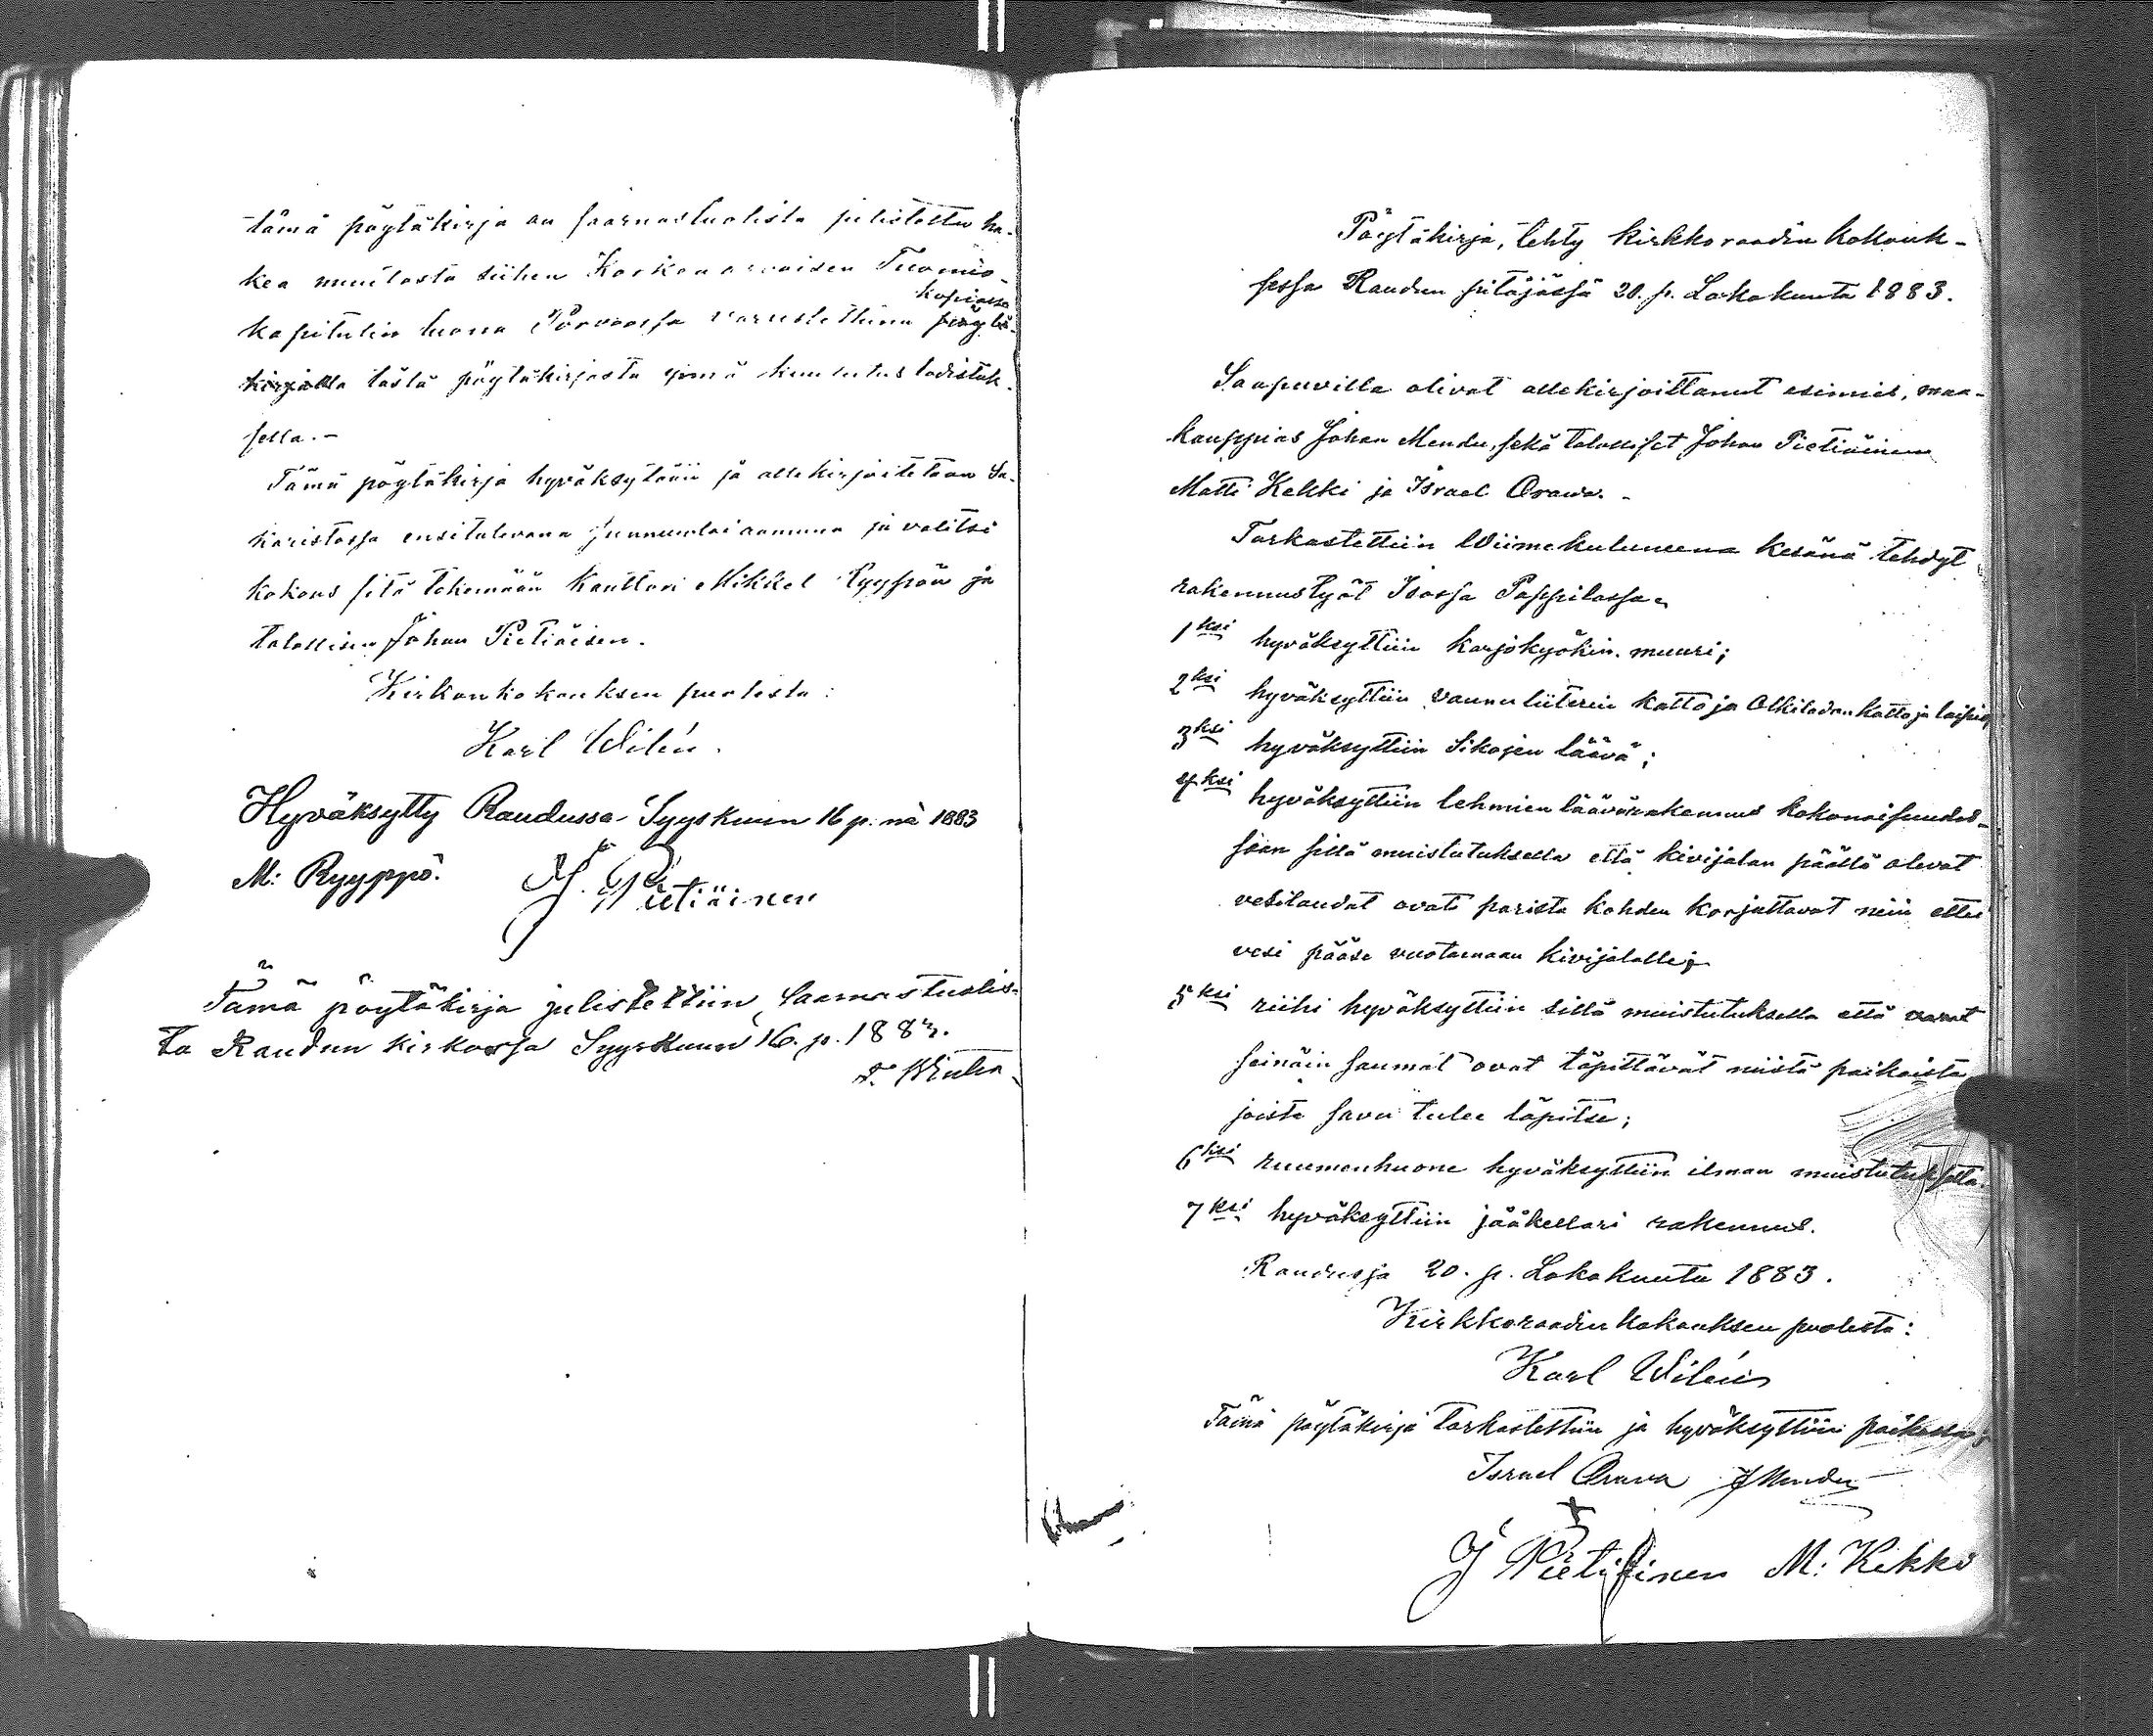 tämä pöytäkirja on saarnastuolista julistettu ha-
kea muutosta siihen Korkeaarvoisen Tuomio-
kapitulin luona Porvoossa varustettuna
kopiassa
tästä pöytäkirjasta ynnä kuulutus todistuk-
sella. -
Tämä pöytäkirja hyväksytään ja allekirjoitetaan Sa-
karistossa ensitulevana sunnuntaiaamuna ja valitsi
kokous sitä tekemään kanttori Mikkel Ryypön ja
talollisen Johan Pietiäisen.
Kirkonkokouksen puolesta:
Karl Wilén.
Hyväksytty Raudussa Syyskuun 16 p. nä 1883
M: Ryyppö. J. Pietiäinen
Tämä pöytäkirja julistettiin Saarnastuolis-
ta Raudun kirkossa Syyskuun 16. p. 1883.
Pöytäkirja, tehty kirkkoraadin kokouk-
sessa Raudun pitäjässä 20. p. Lokakuuta 1883.
Saapuvilla olivat allekirjoittanut esimies, maa-
kauppias Johan Mendu, sekä talolliset Johan Pietiäinen
Matti Kekki ja Israel Orawa. -
Tarkastettiin Wiimekuluneena kesänä tehdyt
rakennustyöt Isossa Pappilassa.
1ksi hyväksyttiin karjakyökin muuri;
2ksi hyväksyttiin vaunuliiterin katto ja Olkiladon katto ja
3ksi hyväksyttiin Sikojen läävä;
4ksi hyväksyttiin lehmien läävärakennus kokonaisuudes-
saan sillä muistutuksella että kivijalan päällä olevat
vesilaudat ovat parista kohden korjattavat niin ettei
vesi pääse vuotamaan kivijalalle;
5ksi riihi hyväksyttiin sillä muistutuksella että
seinäin saumat ovat täpittävät niistä paikoista
joista savu tulee läpitse;
6ksi ruumenhuone hyväksyttiin ilman muistutuksetta.
7ksi hyväksyttiin jääkellari rakennus.
Raudussa 20. p. Lokakuuta 1883.
Kirkkoraadin kokouksen puolesta:
Karl Wilén
Tämä pöytäkirja tarkastettiin ja hyväksyttiin paikalla;
Israel Orawa J Mendu
J Pietiäinen M: Kekki